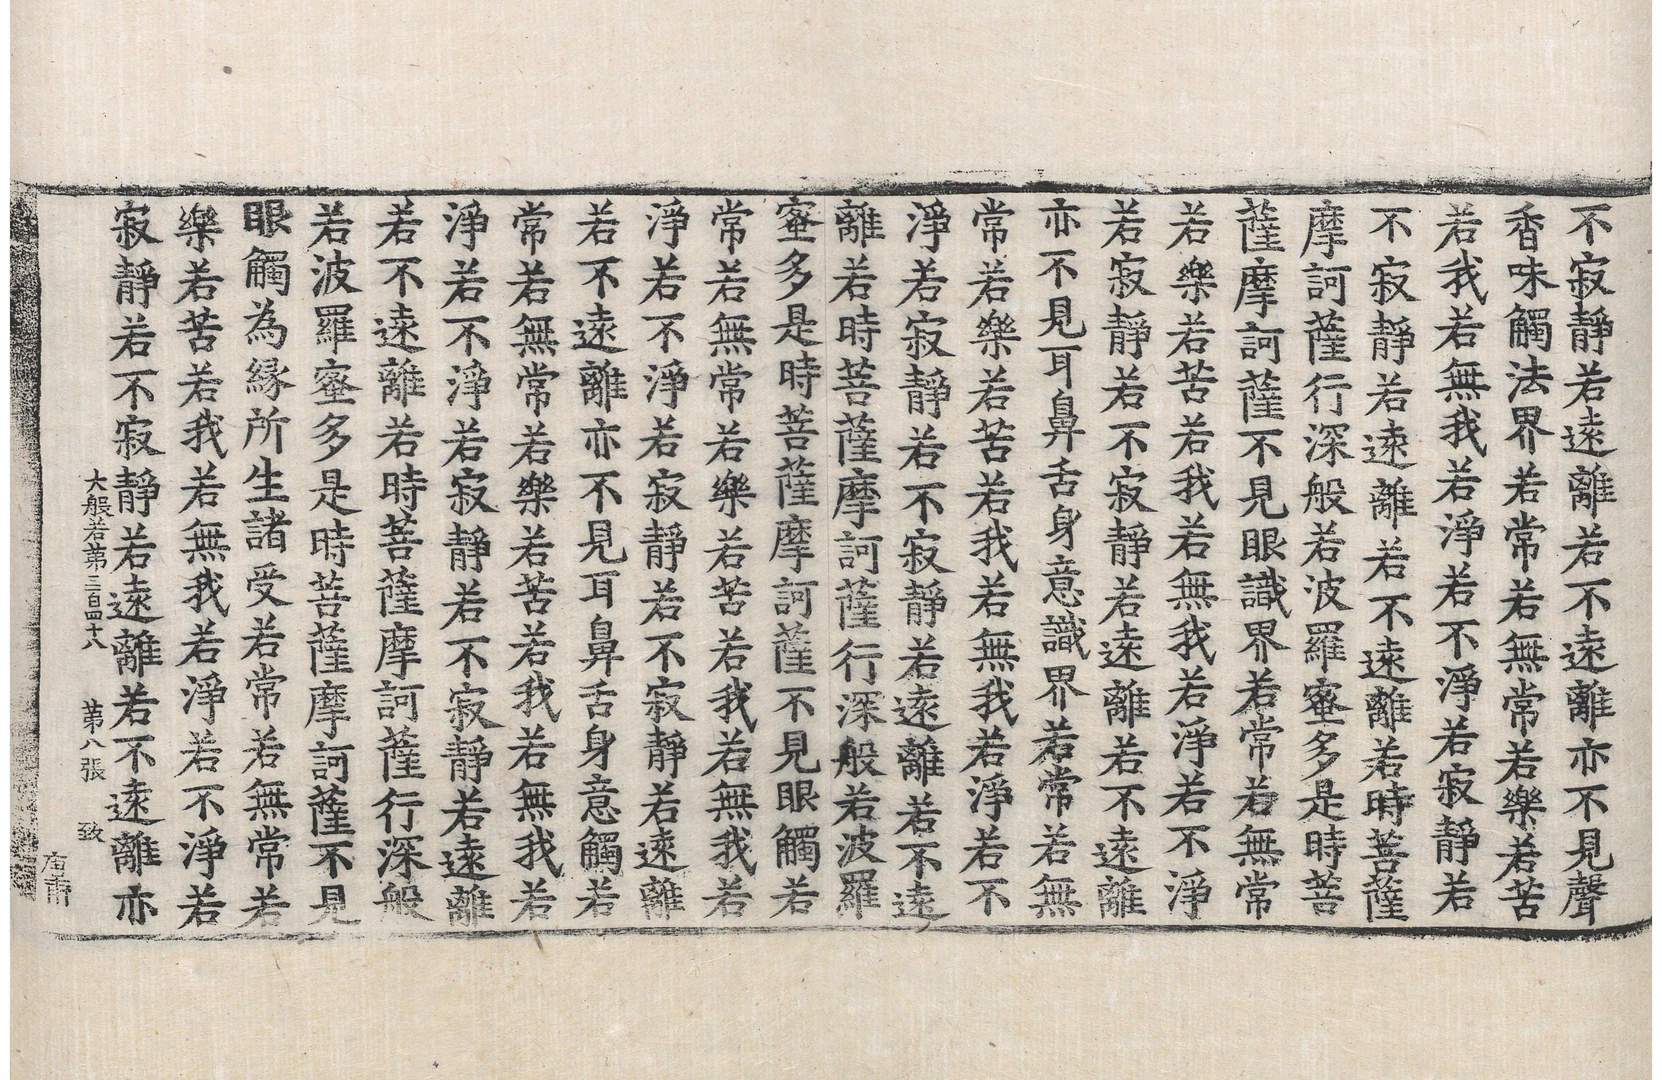 不寂靜若遠離若不遠離亦不見聲
香味觸法界若常若無常若樂若苦
若我若無我若淨若不淨若寂靜若
不寂靜若遠離若不遠離若時菩薩
摩訶薩行深般若波羅蜜多是時菩
薩摩訶薩不見眼識界若常若無常
若樂若苦若我若無我若淨若不淨
若寂靜若不寂靜若遠離若不遠離
亦不見耳鼻舌身意識界若常若無
常若樂若苦若我若無我若淨若不
淨若寂靜若不寂靜若遠離若不遠
離若時菩薩摩訶薩行深般若波羅
蜜多是時菩薩摩訶薩不見眼觸若
常若無常若樂若苦若我若無我若
淨若不淨若寂靜若不寂靜若遠離
若不遠離亦不見耳鼻舌身意觸若
常若無常若樂若苦若我若無我若
淨若不淨若寂靜若不寂靜若遠離
若不遠離若時菩薩摩訶薩行深般
若波羅蜜多是時菩薩摩訶薩不見
眼觸為緣所生諸受若常若無常若
樂若苦若我若無我若淨若不淨若
寂靜若不寂靜若遠離若不遠離亦
大般若第三百四十八 第八張 致